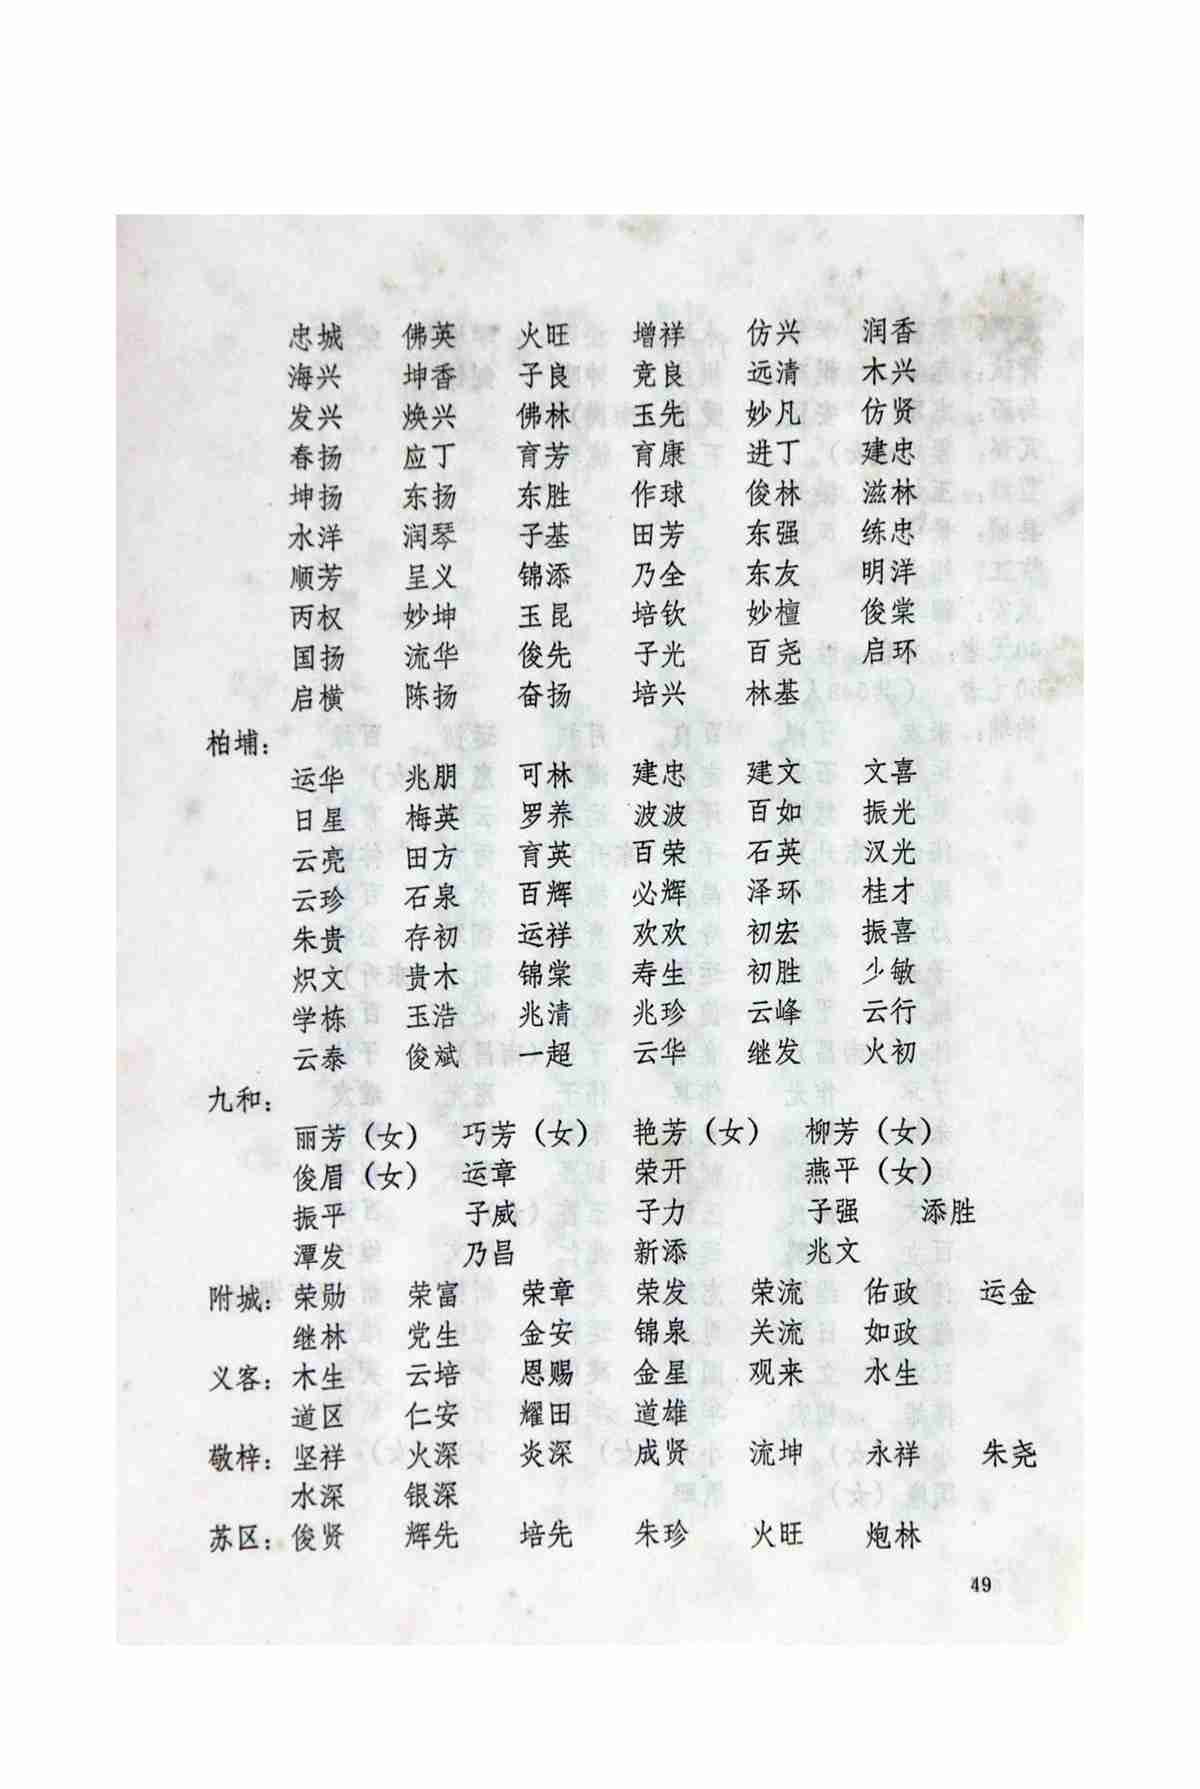 忠城 佛英 火旺 增祥 仿兴 润香
海兴 坤香 子良 竞良 远清 木兴
发兴 焕兴 佛林 玉先 妙凡 仿贤
春扬 应丁 育芳 育康 进丁 建忠
坤扬 东扬 东胜 作球 俊林 滋林
水洋 润琴 子基 田芳 东强 练忠
顺芳 呈义 锦添 乃全 东友 明洋
丙权 妙坤 玉昆 培钦 妙檀 俊棠
国扬 流华 俊先 子光 百尧 启环
启横 陈扬 奋扬 培兴 林基
柏埔：
运华 兆朋 可林 建忠 建文 文喜
日星 梅英 罗养 波波 百如 振光
云亮 田方 育英 百荣 石英 汉光
云珍 石泉 百辉 必辉 泽环 桂才
朱贵 存初 运祥 欢欢 初宏 振喜
炽文 贵木 锦棠 寿生 初胜 少敏
学栋 玉浩 兆清 兆珍 云峰 云行
云泰 俊斌 一超 云华 继发 火初
九和：
丽芳（女） 巧芳（女） 艳芳（女） 柳芳（女）
俊眉（女） 运章 荣开 燕平（女）
振平 子威 子力 子强 添胜
潭发 乃昌 新添 兆文
附城：荣勋 荣富 荣章 荣发 荣流 佑政 运金
继林 党生 金安 锦泉 关流 如政
义客：木生 云培 恩赐 金星 观来 水生
道区 仁安 耀田 道雄
敬梓：坚祥 火深 炎深 成贤 流坤 永祥 朱尧
水深 银深
苏区：俊贤 辉先 培先 朱珍 火旺 炮林
49